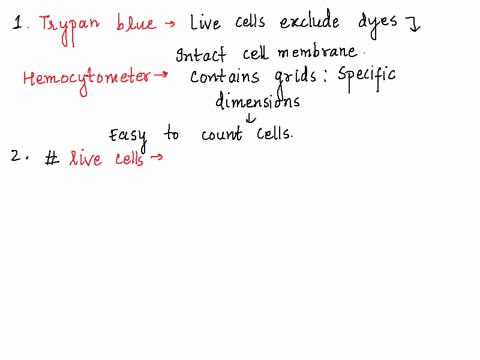 1. Trypan blue → Live cells exclude dyes ↴
Intact cell membrane.
Hemocytometer → Contains grids: Specific
dimensions
↓
Easy to count cells.
2. # live cells →